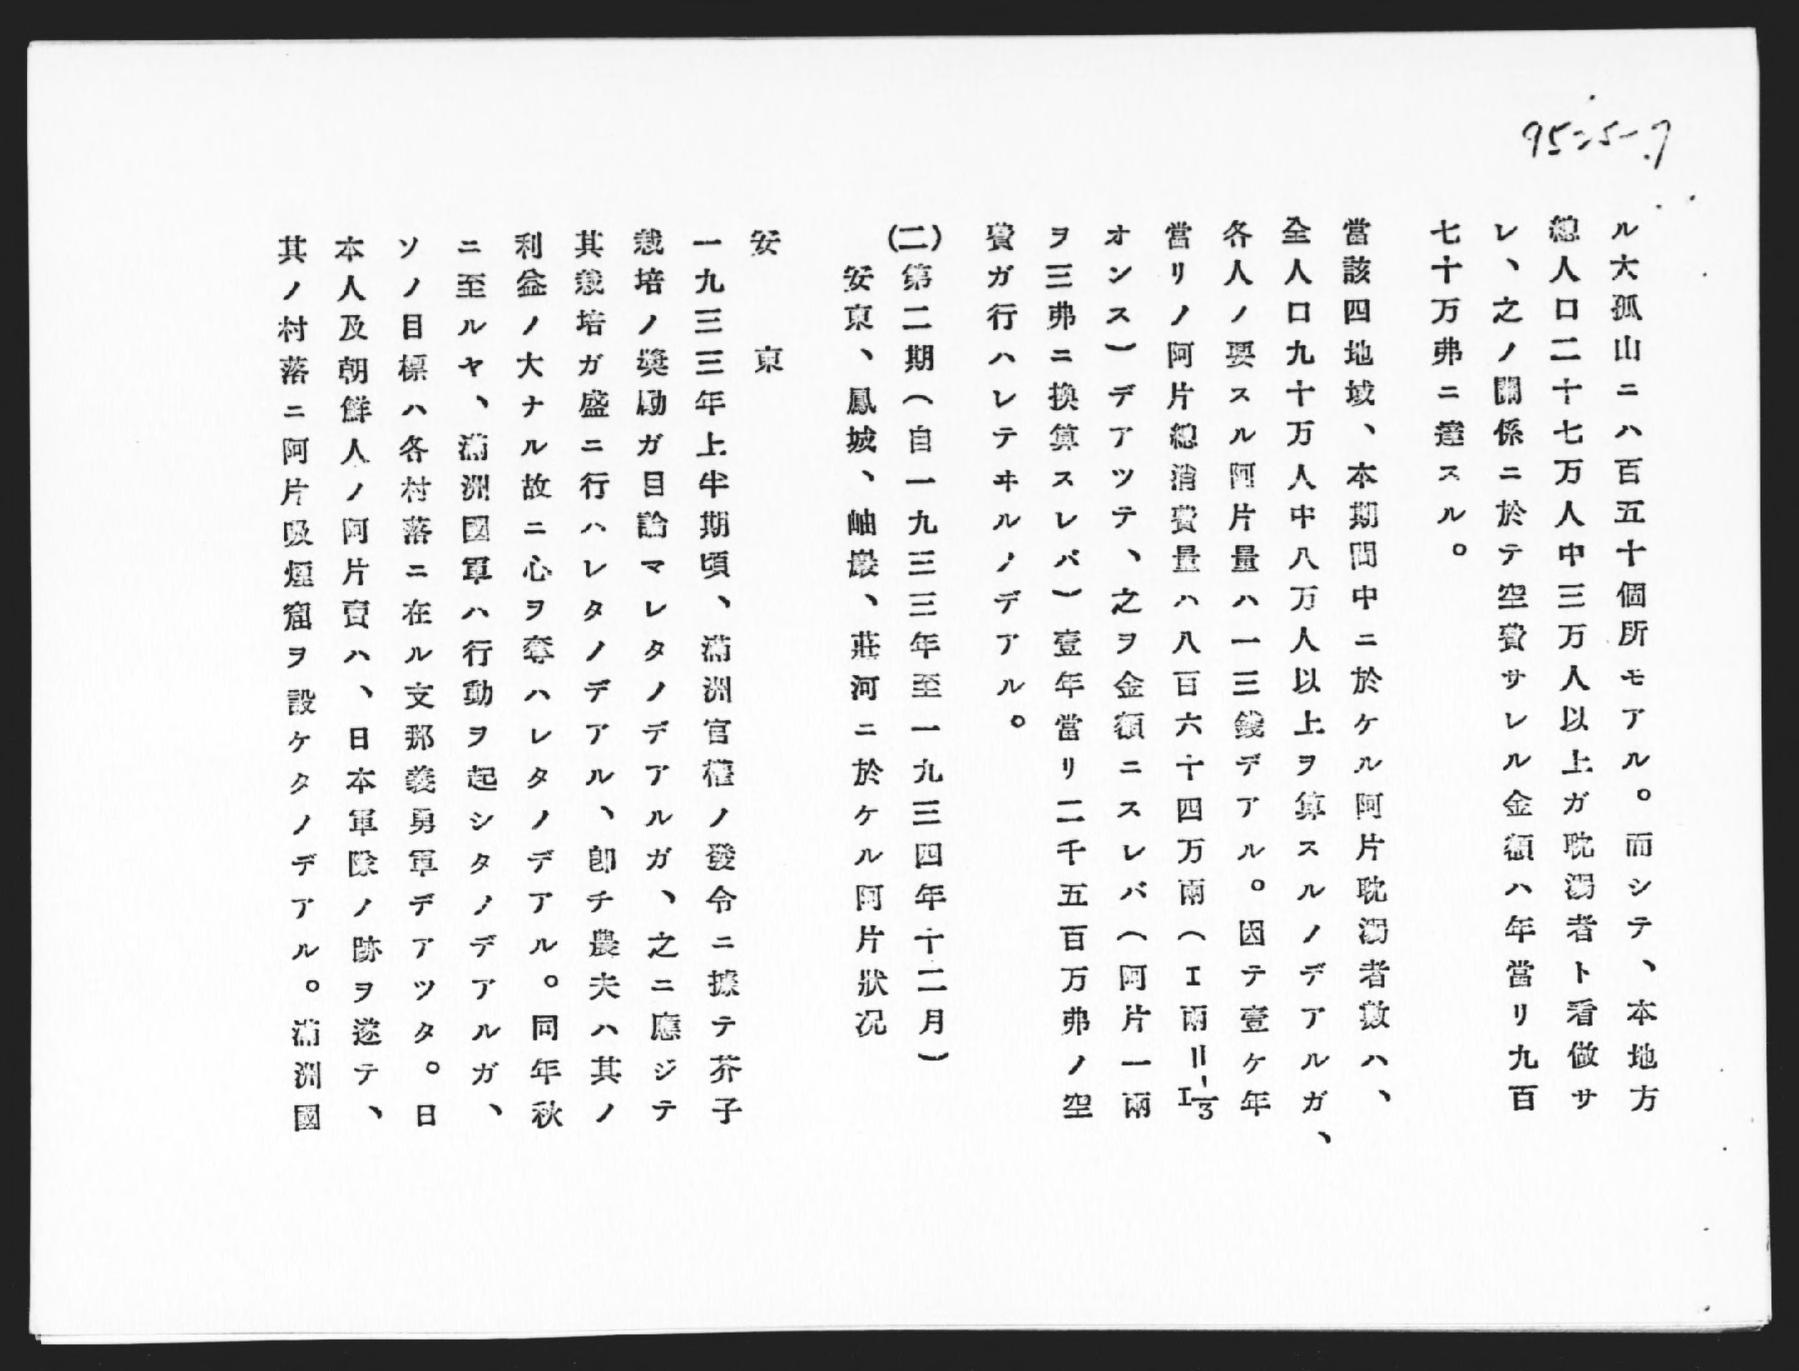 ル大孤山ニハ百五十個所モアル。而シテ、本地方
總人口二十七万人中三万人以上ガ耽溺者ト看做サ
レ、之ノ關係ニ於テ空費サレル金額ハ年當リ九百
七十万弗ニ達スル。
當該四地域、本期間中ニ於ケル阿片耽溺者數ハ、
全人口九十万人中八万人以上ヲ算スルノデアルガ、
各人ノ要スル阿片量ハ一三錢デアル。因テ壹ケ年
當リノ阿片總消費量ハ八百六十四万兩(I兩=I⅓
オンス)デアツテ、之ヲ金額ニスレバ(阿片一兩
ヲ三弗ニ換算スレバ)壹年當リ二千五百万弗ノ空
費ガ行ハレテヰルノデアル。
(二)第二期(自一九三三年至一九三四年十二月)
安東、鳳城、岫巖、莊河ニ於ケル阿片狀況
安東
一九三三年上半期頃、滿洲官權ノ發令ニ據テ芥子
栽培ノ奬勵ガ目論マレタノデアルガ、之ニ應ジテ
其栽培ガ盛ニ行ハレタノデアル、卽チ農夫ハ其ノ
利益ノ大ナル故ニ心ヲ奪ハレタノデアル。同年秋
ニ至ルヤ、滿洲國軍ハ行動ヲ起シタノデアルガ、
ソノ目標ハ各村落ニ在ル支那義勇軍デアツタ。日
本人及朝鮮人ノ阿片賣ハ、日本軍隊ノ跡ヲ遂テ、
其ノ村落ニ阿片吸煙窟ヲ設ケタノデアル。滿洲國